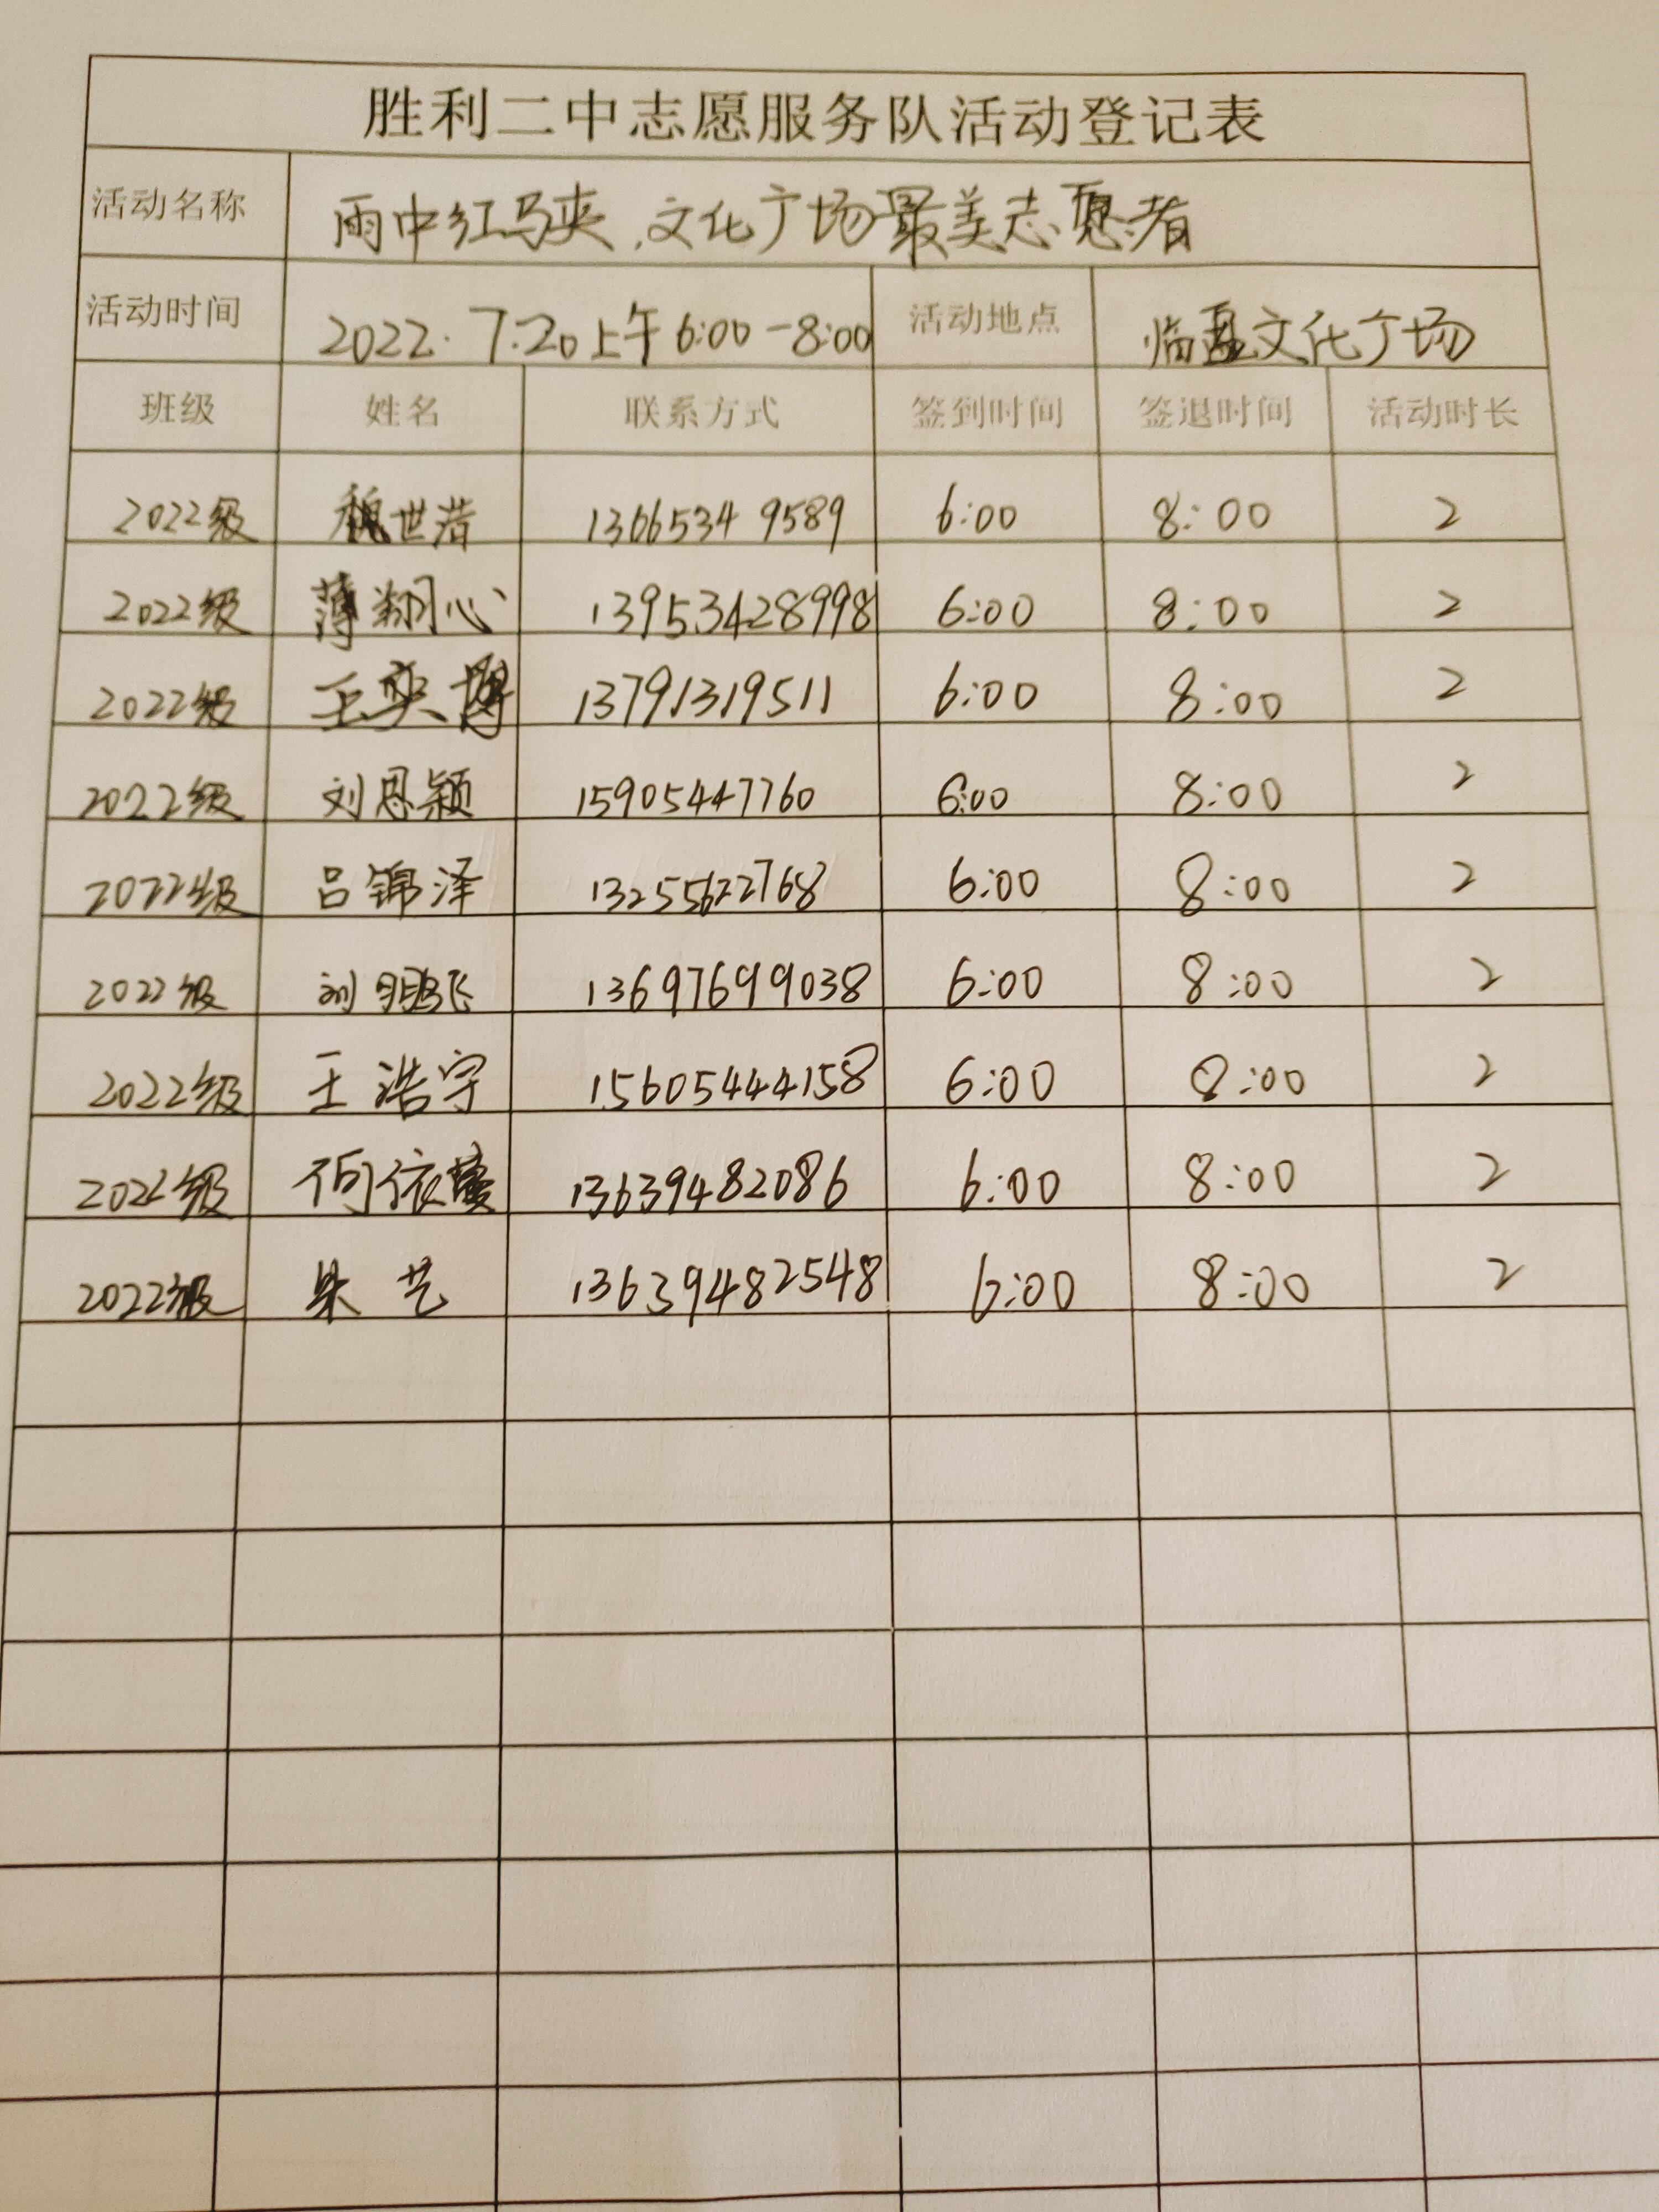 胜利二中志愿服务队活动登记表
活动名称 雨中红马夹,文化广场最美志愿者
活动时间 2022.7.20上午6:00-8:00 活动地点 临邑文化广场
班级 姓名 联系方式 签到时间 签退时间 活动时长
2022级 魏世浩 13665349589 6:00 8:00 2
2022级 薄翔心 13953428998 6:00 8:00 2
2022级 王奕博 13791319511 6:00 8:00 2
2022级 刘恩颖 15905447760 6:00 8:00 2
2022级 吕锦泽 13255622768 6:00 8:00 2
2022级 刘鹏飞 13697699038 6:00 8:00 2
2022级 王浩宇 15605444158 6:00 8:00 2
2022级 何依蔓 13639482086 6:00 8:00 2
2022级 朱艺 13639482548 6:00 8:00 2